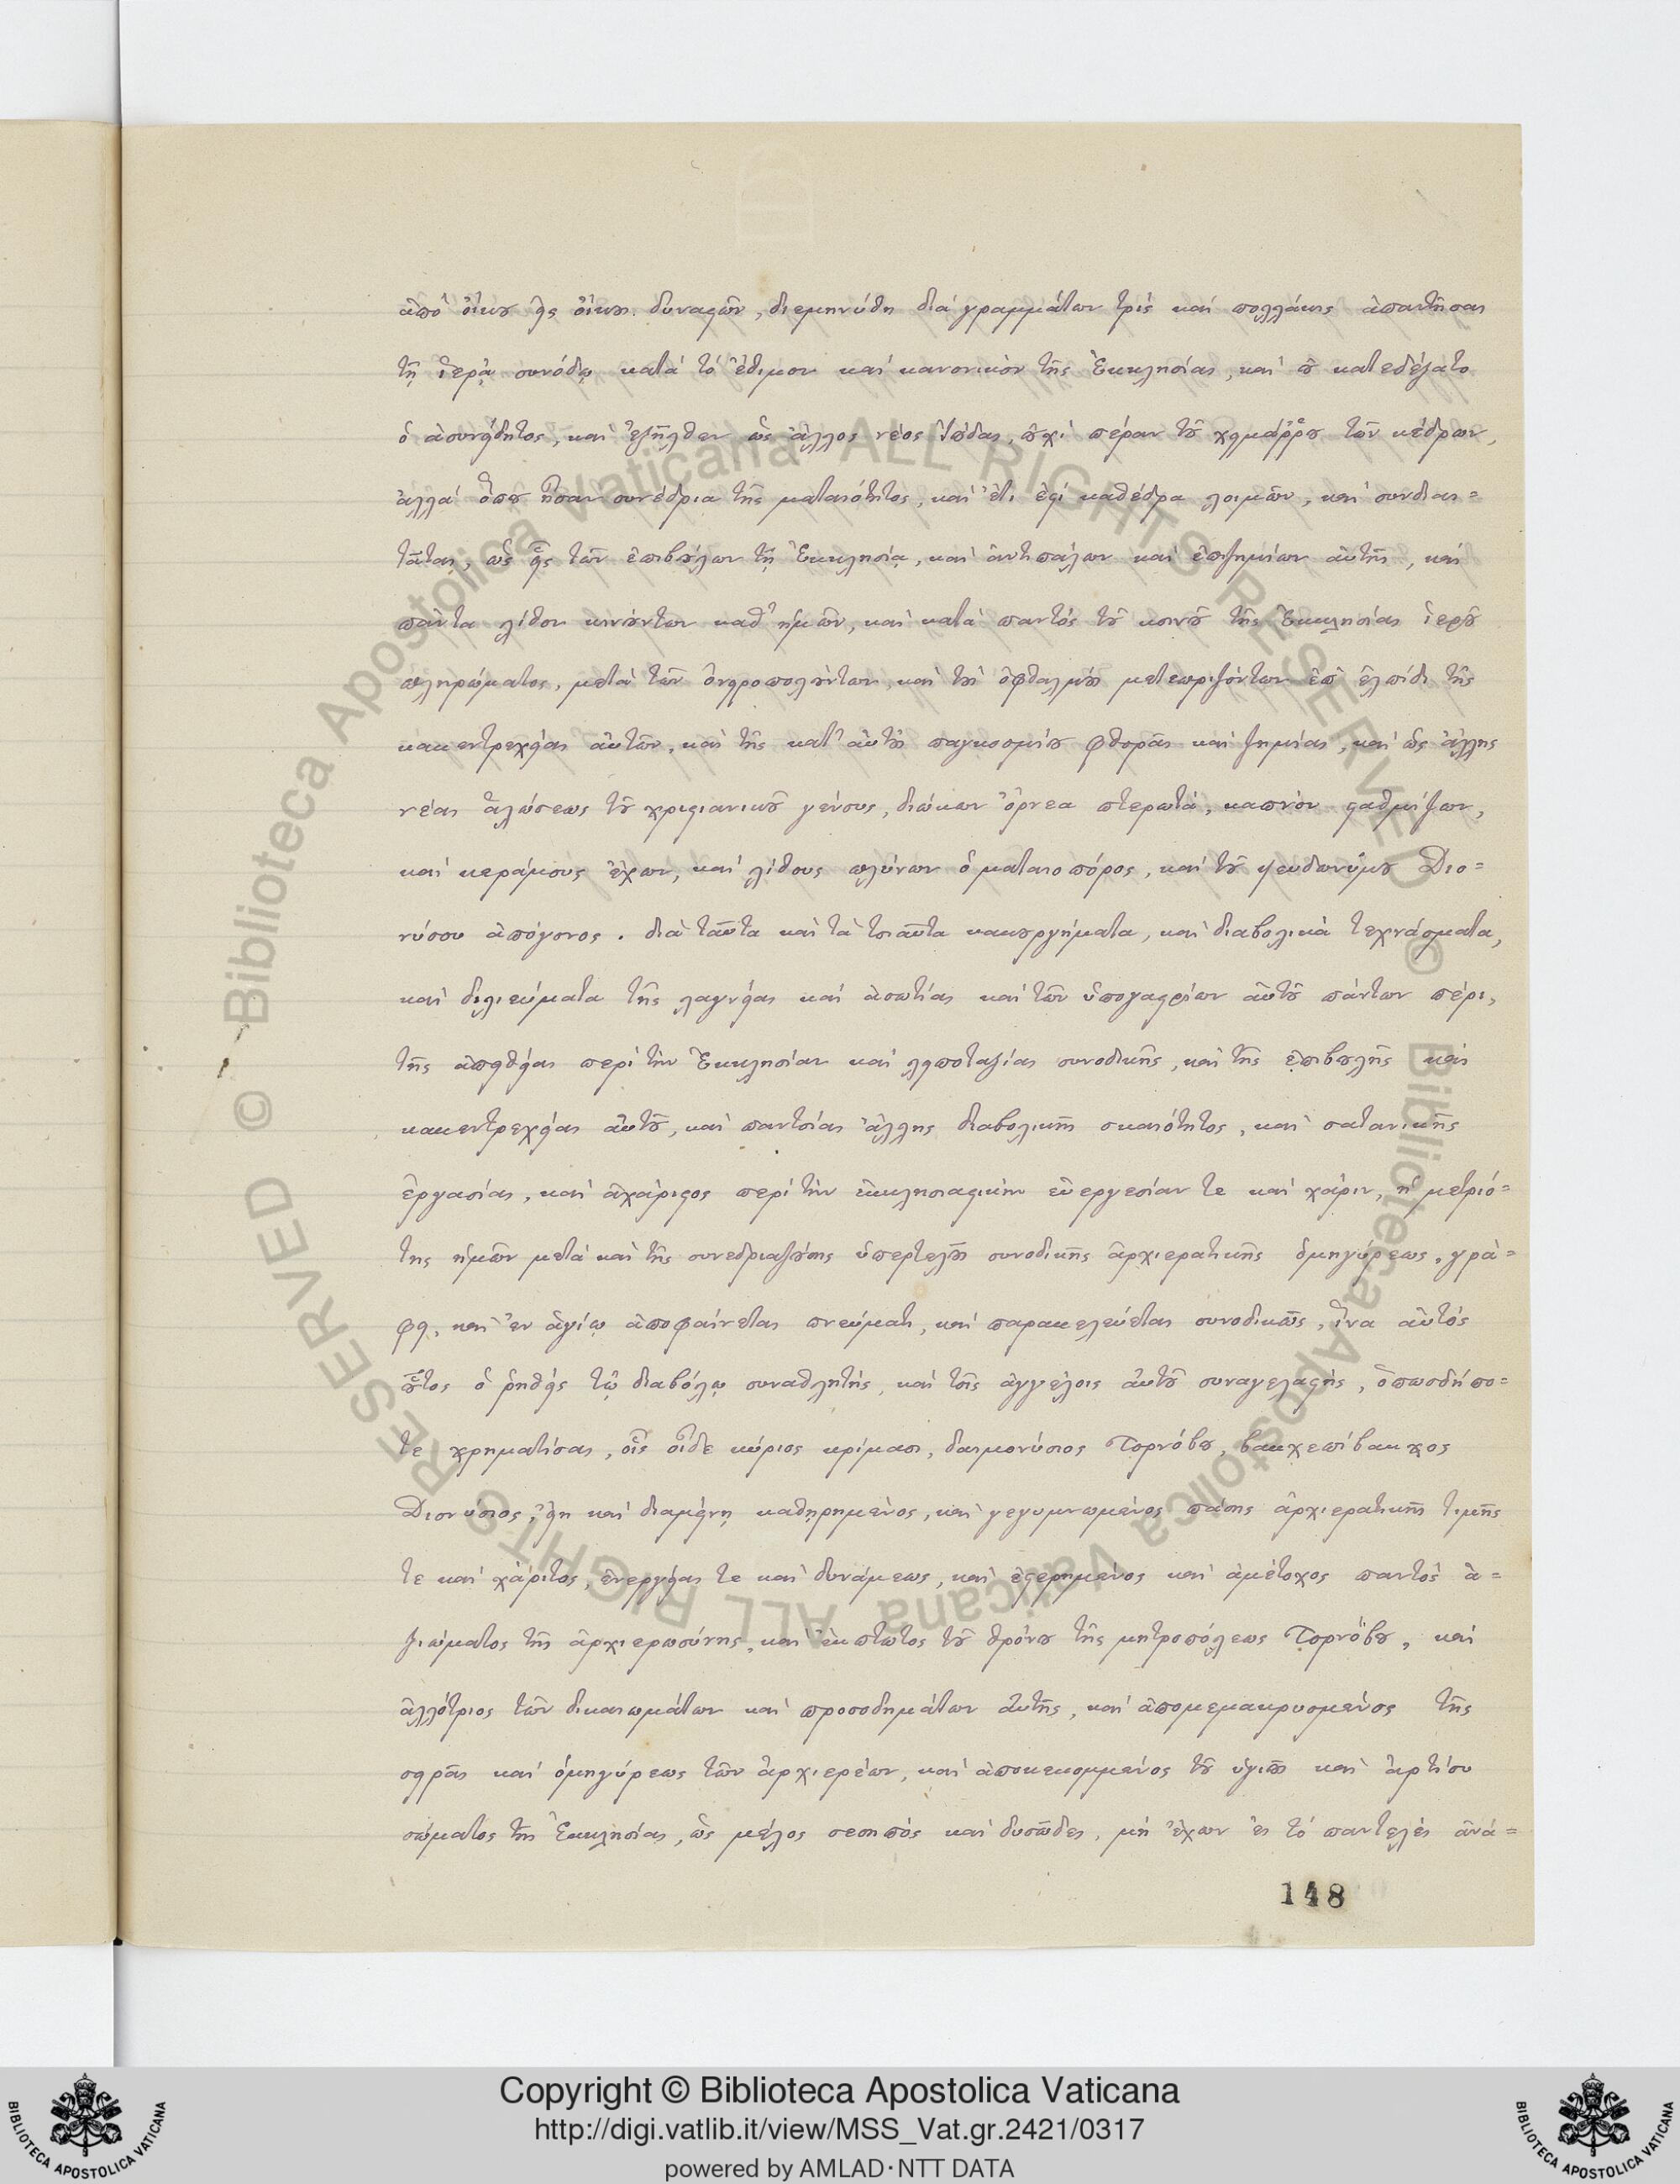 ἀπὸ οἴκου εἰς οἴκους δυναστῶν, διεμηνύθη διὰ γραμμάτων τρὶς καὶ πολλάκις ἀπαντῆσαι
τῇ ἱερᾷ συνόδῳ κατὰ τὸ ἔθιμον καὶ κανονικὸν τῆς Ἐκκλησίας, καὶ οὐ κατεδέξατο
ὁ ἀσυνείδητος, καὶ ἐξῆλθεν ὡς ἄλλος νέος Ἰούδας, οὐχὶ πέραν τοῦ χειμάῤῥου τῶν κέδρων,
ἀλλὰ ὅπου ἦσαν συνέδρια τῆς ματαιότητος, καὶ ἔτι ἐστὶ καθέδρα λοιμῶν, καὶ συνδιαι=
τᾶται, ὡς εἷς τῶν ἐπιβούλων τῇ Ἐκκλησίᾳ, καὶ ἀντιπάλων καὶ ἐπιζημίων αὐτῆς, καὶ
πάντα λίθον κινούντων καθ' ἡμῶν, καὶ κατὰ παντὸς τοῦ κοινοῦ τῆς Ἐκκλησίας ἱεροῦ
πληρώματος, μετὰ τῶν ὀνειροπολούντων, καὶ τοὺς ὀφθαλμοὺς μετεωριζόντων ἐπ' ἐλπίδι τῆς
κακεντρεχείας αὐτῶν, καὶ τῆς κατ' αὐτοὺς παγκοσμίου φθορᾶς καὶ ζημίας, καὶ ὡς ἄλλης
νέας ἁλώσεως τοῦ χριστιανικοῦ γένους, διώκων ὄρνεα πτερωτά, καπνὸν σταθμίζων,
καὶ κεράμους ἔχων, καὶ λίθους πλύνων ὁ ματαιοπόρος, καὶ τοῦ ψευδωνύμου Διο=
νύσου ἀπόγονος. διὰ ταῦτα καὶ τὰ τοιαῦτα κακουργήματα, καὶ διαβολικὰ τεχνάσματα,
καὶ διλιεύματα τῆς λαγνείας καὶ ἀσωτίας καὶ τῶν ὑπογαστρίων αὐτοῦ πάντων πέρι,
τῆς ἀπειθείας περὶ τὴν Ἐκκλησίαν καὶ λειποταξίας συνοδικῆς, καὶ τῆς ἐπιβουλῆς καὶ
κακεντρεχείας αὐτοῦ, καὶ παντοίας ἄλλης διαβολικῆς σκαιότητος, καὶ σατανικῆς
ἐργασίας, καὶ ἀχάριστος περὶ τὴν ἐκκλησιαστικὴν εὐεργεσίαν τε καὶ χάριν, ἡ μετριό=
της ἡμῶν μετὰ καὶ τῆς συνεδριαζούσης ὑπερτελοῦς συνοδικῆς ἀρχιερατικῆς ὁμηγύρεως, γρά=
φει, καὶ ἐν ἁγίῳ ἀποφαίνεται πνεύματι, καὶ παρακελεύεται συνοδικῶς, ἵνα αὐτὸς
οὗτος ὁ ῥηθεὶς τῷ διαβόλῳ συναθλητής, καὶ τοῖς ἀγγέλοις αὐτοῦ συναγελαστής, ὁπωσδήπο=
τε χρηματίσας, οἷς οἶδε κύριος κρίμασι, δαιμονύσιος Τορνόβου, βακχεπίβακχος
Διονύσιος, εἴη καὶ διαμένῃ καθῃρημένος, καὶ γεγυμνωμένος πάσης ἀρχιερατικῆς τιμῆς
τε καὶ χάριτος, ἐνεργείας τε καὶ δυνάμεως, καὶ ἐστερημένος καὶ ἀμέτοχος παντὸς ἀ=
ξιώματος τῆς ἀρχιερωσύνης, καὶ ἔκπτωτος τοῦ θρόνου τῆς μητροπόλεως Τορνόβου, καὶ
ἀλλότριος τῶν δικαιωμάτων καὶ προσοδημάτων αὐτῆς, καὶ ἀπομεμακρυσμένος τῆς
σειρᾶς καὶ ὁμηγύρεως τῶν ἀρχιερέων, καὶ ἀποκεκομμένος τοῦ ὑγιοῦς καὶ ἀρτίου
σώματος τῆς Ἐκκλησίας, ὡς μέλος σεσηπὸς καὶ δυσῶδες, μὴ ἔχων ἐς τὸ παντελὲς ἀνά=
148
Copyright © Biblioteca Apostolica Vaticana
http://digi.vatlib.it/view/MSS_Vat.gr.2421/0317
powered by AMLAD·NTT DATA
BIBLIOTECA APOSTOLICA VATICANA
BIBLIOTECA APOSTOLICA VATICANA
© Biblioteca Apostolica Vaticana ALL RIGHTS RESERVED
© Biblioteca Apostolica Vaticana ALL RIGHTS RESERVED